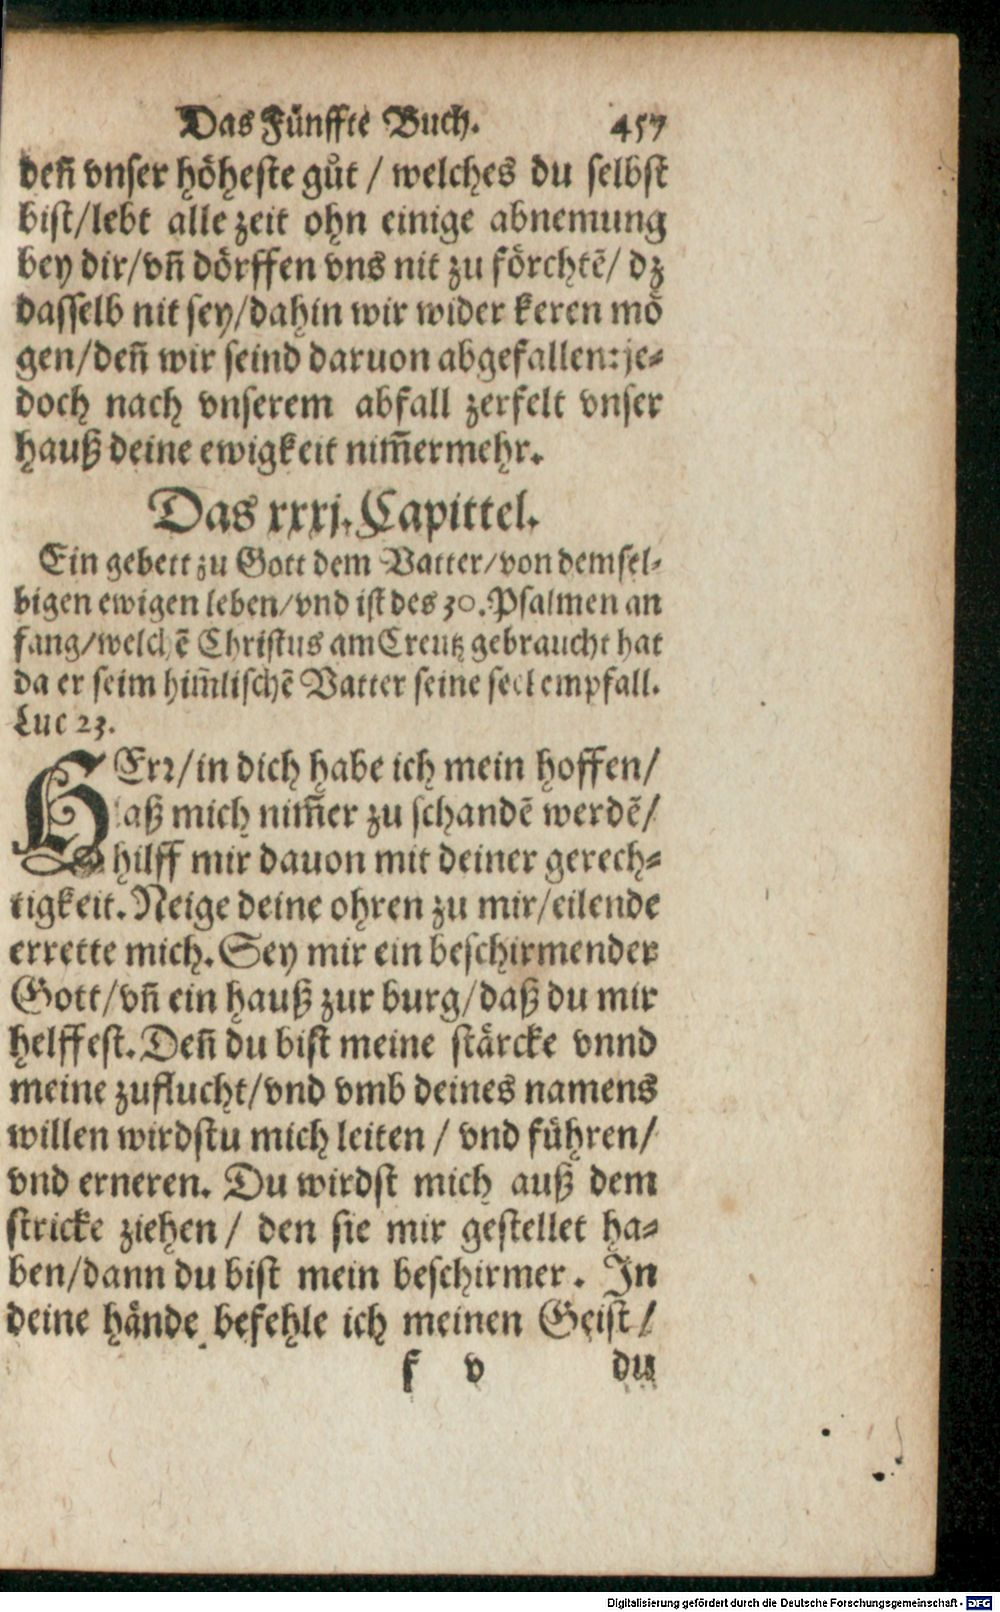 Das Fünffte Buch. 457
deñ vnser höheste gůt / welches du selbst
bist/lebt alle zeit ohn einige abnemung
bey dir/vñ dörffen vns nit zu förchtē/ dz
dasselb nit sey/dahin wir wider keren mö
gen/deñ wir seind daruon abgefallen: je-
doch nach vnserem abfall zerfelt vnser
hauß deine ewigkeit nim̄ermehr.
Das xxxj. Capittel.
Ein gebett zu Gott dem Vatter/von demsel-
bigen ewigen leben/vnd ist des 30. Psalmen an
fang/welchē Christus am Creutz gebraucht hat
da er seim him̄lischē Vatter seine seel empfall.
Luc 23.
HErr/in dich habe ich mein hoffen/
laß mich nim̄er zu schandē werdē/
hilff mir dauon mit deiner gerech-
tigkeit. Neige deine ohren zu mir/eilende
errette mich. Sey mir ein beschirmender
Gott/vñ ein hauß zur burg/daß du mir
helffest. Deñ du bist meine stärcke vnnd
meine zuflucht/vnd vmb deines namens
willen wirdstu mich leiten / vnd führen/
vnd erneren. Du wirdst mich auß dem
stricke ziehen / den sie mir gestellet ha-
ben/dann du bist mein beschirmer. In
deine hände befehle ich meinen Geist /
f v du
Digitalisierung gefördert durch die Deutsche Forschungsgemeinschaft - DFG